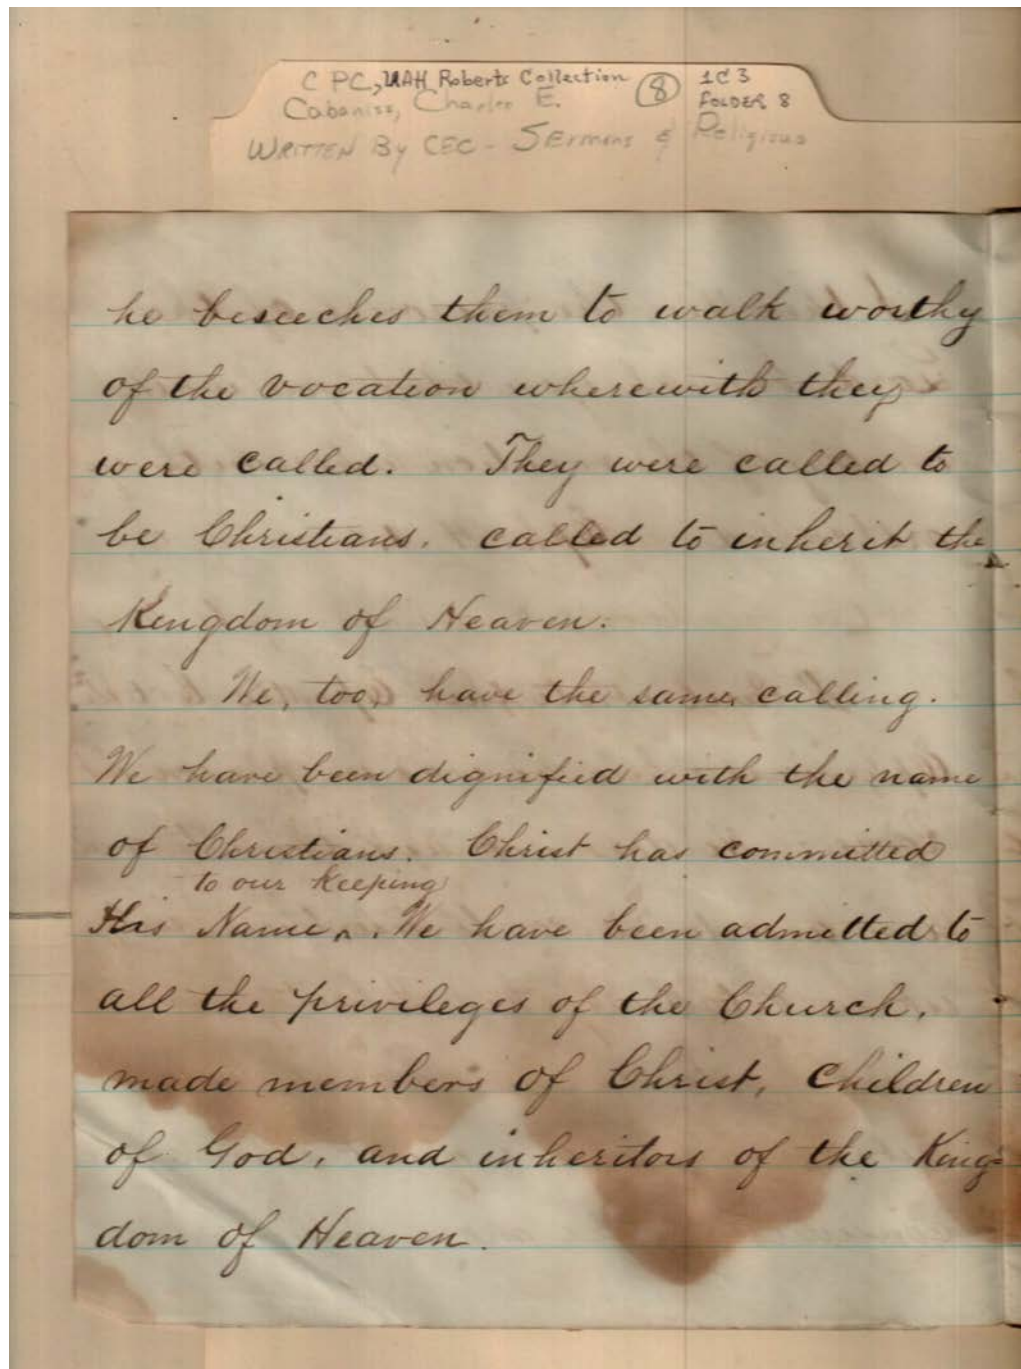 C PC, UAH Roberts Collection 8 1C3
Cabaniss, Charles E. FOLDER 8
WRITTEN By CEC - SErmons & Religious
he beseeches them to walk worthy
of the vocation wherewith they
were called. They were called to
be Christians. called to inherit the
Kingdom of Heaven.
We, too, have the same, calling.
We have been dignified with the name
of Christians. Christ has committed
to our keeping
His Name ^. We have been admitted to
all the privileges of the Church,
made members of Christ, children
of God, and inheritors of the King=
dom of Heaven.